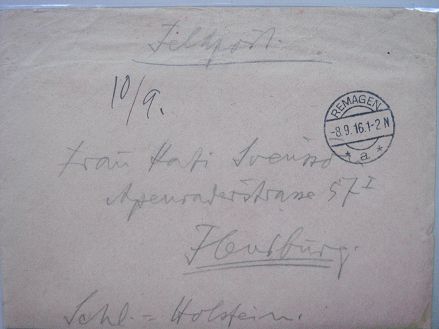 Feldpost.
10/9.
REMAGEN
-8.9.16.1-2N
* a *
Frau
Apenraderstrasse 57 I
Flensburg.
Schl. = Holstein.